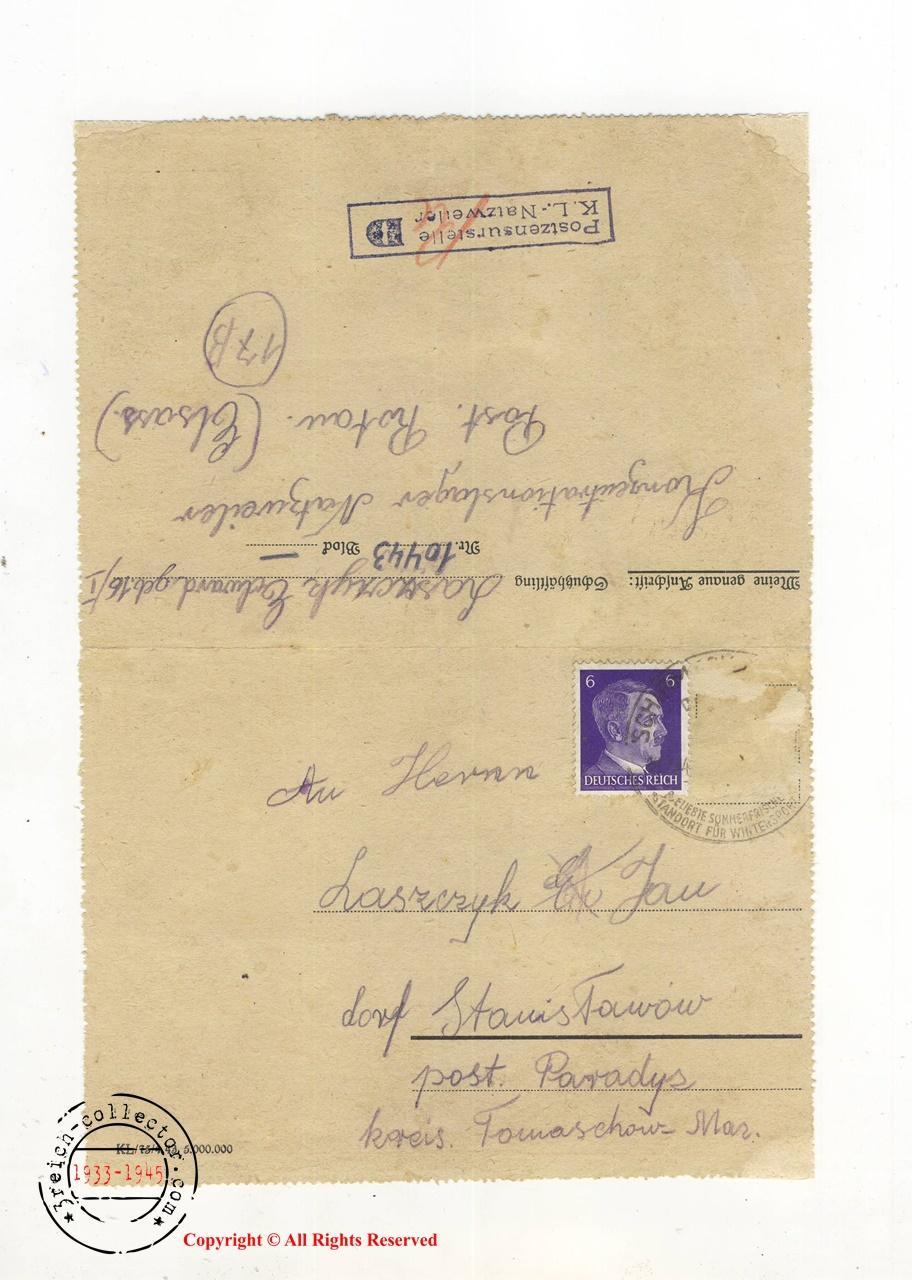 Postzensurstelle
K.L.-Natzweiler
D
17B
Post. Rotau. (Elsass.)
Konzentrationslager Natzweiler
Nr. 10443 Block —
Meine genaue Anschrift: Schutzhäftling Laszczyk Edward. geb. 16/I
6 6
DEUTSCHES REICH
BELIEBTE SOMMERFRISCHE
STANDORT FÜR WINTERSPORT
An Herrn
Laszczyk Jan
dorf Stanisławów
post. Paradys
kreis. Tomaschow- Maz.
KL/75/4.43. 5.000.000
3reich-collector.com
1933-1945
Copyright © All Rights Reserved